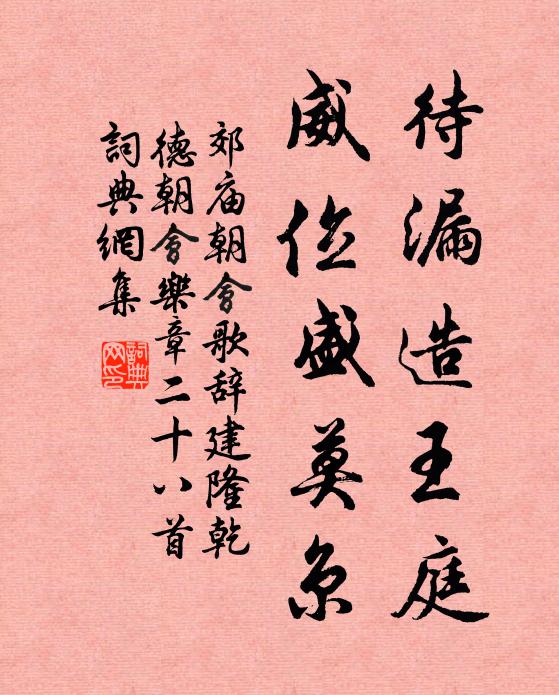 待漏造王庭
威仪盛莫京
郊庙朝會歌辞建隆乾
德朝會樂章二十八首
詞典網集
詞典网印